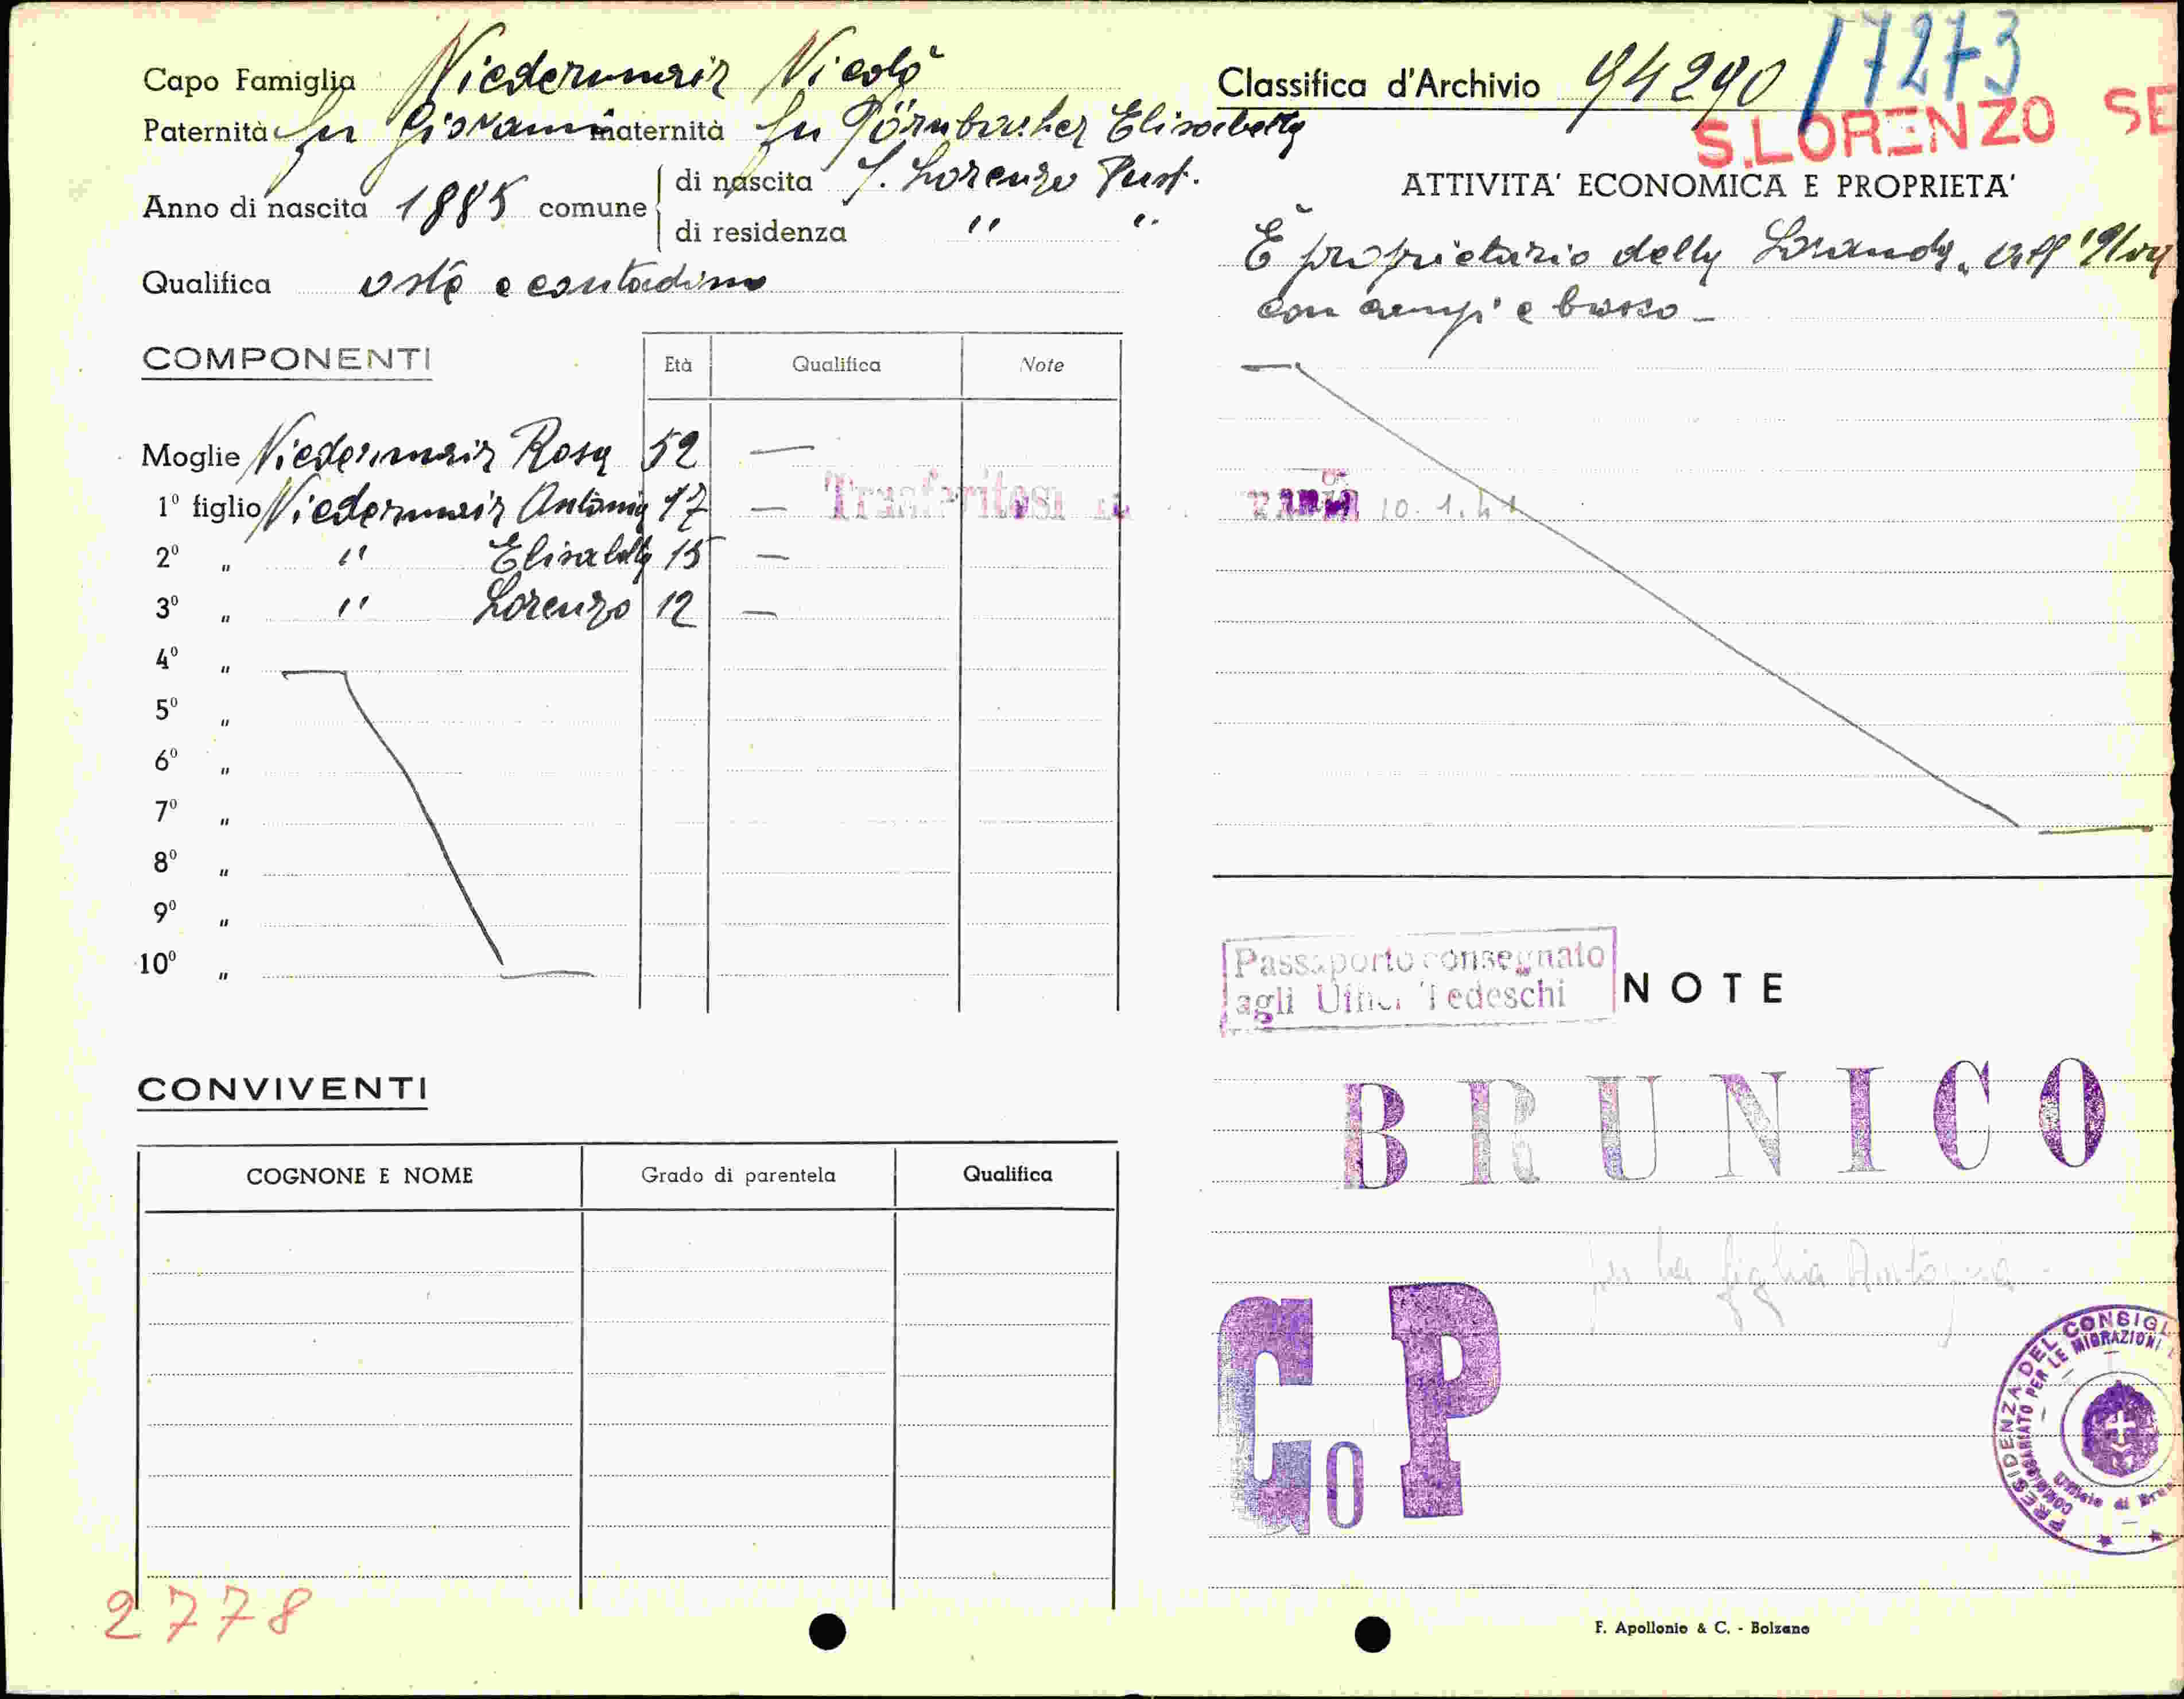 Capo Famiglia Niedermair Nicolò
Paternità fu Giovanni maternità fu Törnbacher Elisabetta
Anno di nascita 1885 comune di nascita S. Lorenzo Pust.
di residenza " "
Qualifica oste e contadino
COMPONENTI
Età Qualifica Note
Moglie Niedermair Rosa 52 —
1º figlio Niedermair Antonia 17 —
2º " " Elisabetta 15 —
3º " " Lorenzo 12 —
4º "
5º "
6º "
7º "
8º "
9º "
10º "
Trasferitosi
CONVIVENTI
COGNONE E NOME Grado di parentela Qualifica
2778
Classifica d'Archivio 94290 / 7273
S.LORENZO SE
ATTIVITA' ECONOMICA E PROPRIETA'
È proprietario della Locanda
con campi e bosco –
10.1.41
Passaporto consegnato
agli Uffici Tedeschi
NOTE
BRUNICO
per la figlia Antonia -
G o P
PRESIDENZA DEL CONSIGL
COMMISSARIATO PER LE MIGRAZIONI
Ufficio di Bru
F. Apollonio & C. - Bolzano